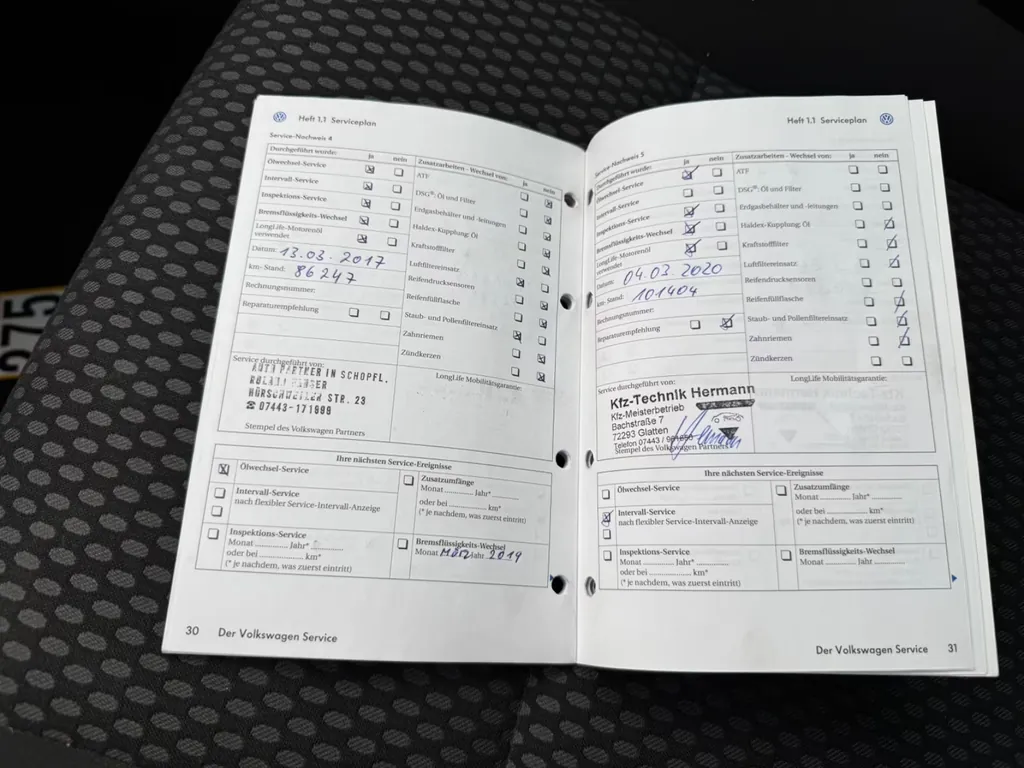 Heft 1.1 Serviceplan
Service-Nachweis 4
Durchgeführt wurde: ja nein
Ölwechsel-Service
Intervall-Service
Inspektions-Service
Bremsflüssigkeits-Wechsel
LongLife-Motorenöl
verwendet
Datum: 13.03.2017
km-Stand: 86247
Rechnungsnummer:
Reparaturempfehlung
Zusatzarbeiten - Wechsel von: ja nein
ATF
DSG®: Öl und Filter
Erdgasbehälter und -leitungen
Haldex-Kupplung: Öl
Kraftstofffilter
Luftfiltereinsatz
Reifendrucksensoren
Reifenfüllflasche
Staub- und Pollenfiltereinsatz
Zahnriemen
Zündkerzen
Service durchgeführt von:
AUTO PARTNER IN SCHOPFL.
STR. 23
☎ 07443-171
Stempel des Volkswagen Partners
LongLife Mobilitätsgarantie:
Ihre nächsten Service-Ereignisse
Ölwechsel-Service
Intervall-Service
nach flexibler Service-Intervall-Anzeige
Inspektions-Service
Monat Jahr*
oder bei km*
(* je nachdem, was zuerst eintritt)
Zusatzumfänge
Monat Jahr*
oder bei km*
(* je nachdem, was zuerst eintritt)
Bremsflüssigkeits-Wechsel
Monat März Jahr 2019
30 Der Volkswagen Service
Heft 1.1 Serviceplan
Service-Nachweis 5
Durchgeführt wurde: ja nein
Ölwechsel-Service
Intervall-Service
Inspektions-Service
Bremsflüssigkeits-Wechsel
LongLife-Motorenöl
verwendet
Datum: 04.03.2020
km-Stand: 101404
Rechnungsnummer:
Reparaturempfehlung
Zusatzarbeiten - Wechsel von: ja nein
ATF
DSG®: Öl und Filter
Erdgasbehälter und -leitungen
Haldex-Kupplung: Öl
Kraftstofffilter
Luftfiltereinsatz
Reifendrucksensoren
Reifenfüllflasche
Staub- und Pollenfiltereinsatz
Zahnriemen
Zündkerzen
Service durchgeführt von:
Kfz-Technik Hermann
Kfz-Meisterbetrieb
Bachstraße 7
72293 Glatten
Telefon 07443 /
Stempel des Volkswagen Partners
LongLife Mobilitätsgarantie:
Ihre nächsten Service-Ereignisse
Ölwechsel-Service
Intervall-Service
nach flexibler Service-Intervall-Anzeige
Inspektions-Service
Monat Jahr*
oder bei km*
(* je nachdem, was zuerst eintritt)
Zusatzumfänge
Monat Jahr*
oder bei km*
(* je nachdem, was zuerst eintritt)
Bremsflüssigkeits-Wechsel
Monat Jahr
Der Volkswagen Service 31